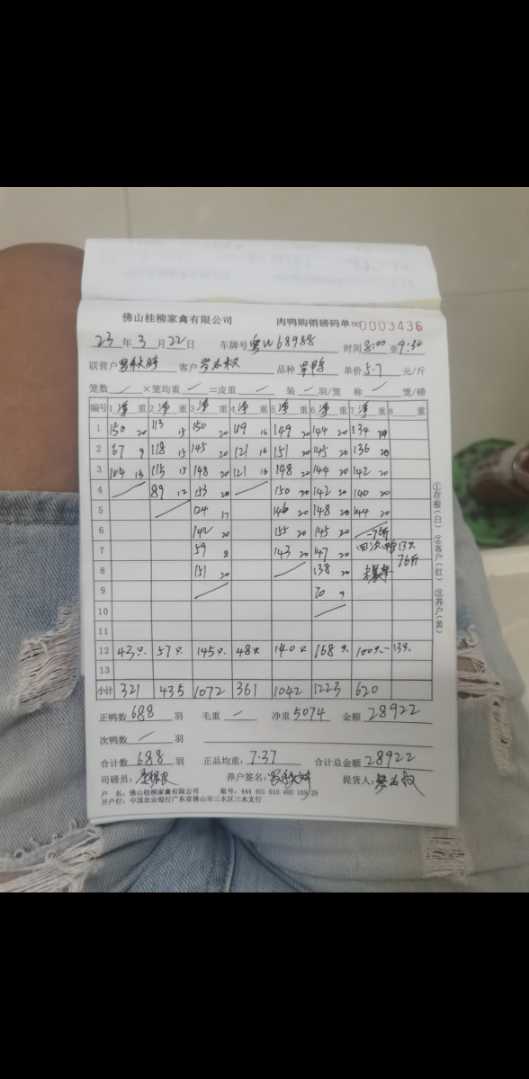 佛山桂柳家禽有限公司 肉鸭购销磅码单 №0003436
23 年 3 月 22 日 车牌号 粤W68988 时间 8:00 至 9:30
联营户 客户 品种 单价 5.7 元/斤
笼数 / ×笼均重 / =皮重 / 装 / 羽/笼 称 / 笼/磅
编号 1 净 重 2 净 重 3 净 重 4 净 重 5 净 重 6 净 重 7 净 重 8 重
1 150 20 113 15 150 20 119 16 149 20 144 20 134 20
2 67 9 118 15 145 20 121 16 151 20 145 20 136 20
3 104 115 15 148 20 121 16 148 20 144 20 142 20
4 / 89 12 153 20 / 150 20 142 20 140 20
5 / 124 17 146 20 148 20 144 20
6 142 20 155 20 145 20 -76斤
7 59 8 143 20 147 20 13只
8 151 20 / 138 20 76斤
9 / 70 9
10 /
11
12 42只 57只 145只 48只 140只 168只 100只 -13只
13
小计 321 435 1072 361 1042 1223 620
正鸭数 688 羽 毛重 / 净重 5074 金额 28922
次鸭数 / 羽
合计数 688 羽 正品均重: 7.37 合计总金额 28922
司磅员: 养户签名: 提货人:
户 名: 佛山桂柳家禽有限公司
开户行: 中国农业银行广东省佛山市三水区三水支行
①存根(白) ②客户(红) ③养户(黄)